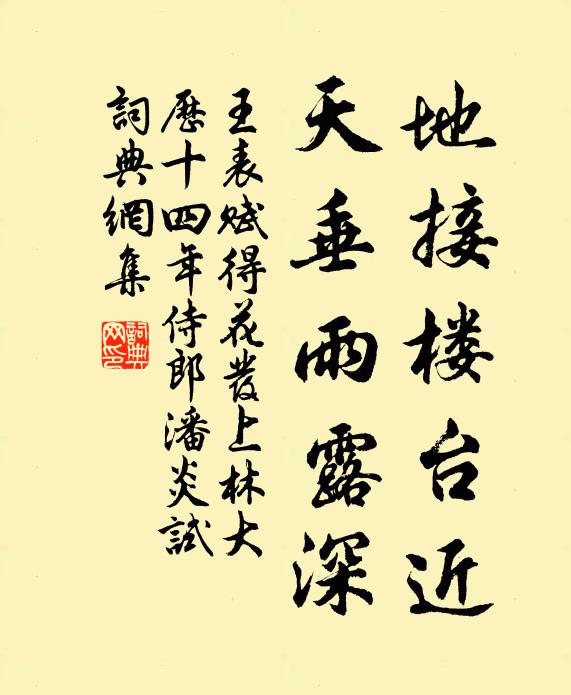 地接楼台近
天垂雨露深
王表赋得花發上林大
歷十四年侍郎潘炎試
詞典網集
詞典
网印